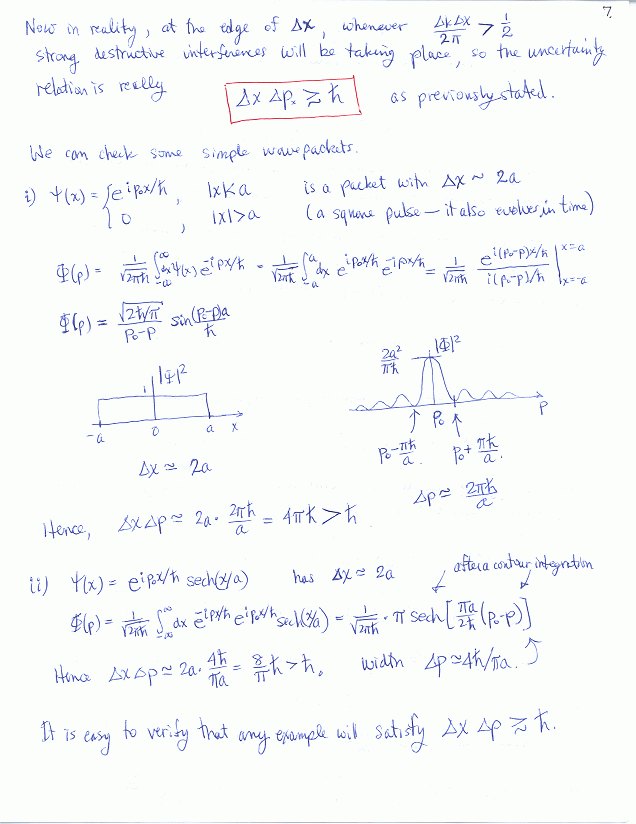 7.
Now in reality, at the edge of Δx, whenever ΔkΔx/2π > 1/2
strong destructive interferences will be taking place, so the uncertainty
relation is really Δx Δpₓ ≳ ħ as previously stated.
We can check some simple wavepackets.
i) Ψ(x) = { e^{ip₀x/ħ}, |x|<a is a packet with Δx ~ 2a
{ 0, |x|>a (a square pulse — it also evolves in time)
Φ(p) = 1/√2πħ ∫_{-∞}^{∞} dx Ψ(x) e^{-ipx/ħ} = 1/√2πħ ∫_{-a}^{a} dx e^{ip₀x/ħ} e^{-ipx/ħ} = 1/√2πħ e^{i(p₀-p)x/ħ} / i(p₀-p)/ħ |_{x=-a}^{x=a}
Φ(p) = √2ħ/π / p₀-p sin (p₀-p)a/ħ
|Ψ|²
1
-a 0 a x
Δx ≃ 2a
|Φ|²
2a²/πħ
p₀ p
p₀ - πħ/a. p₀ + πħ/a.
Δp ≃ 2πħ/a
Hence, Δx Δp ≃ 2a · 2πħ/a = 4πħ > ħ
ii) Ψ(x) = e^{ip₀x/ħ} sech(x/a) has Δx ≃ 2a
after a contour integration
Φ(p) = 1/√2πħ ∫_{-∞}^{∞} dx e^{-ipx/ħ} e^{ip₀x/ħ} sech(x/a) = 1/√2πħ · π sech[πa/2ħ (p₀-p)]
Hence Δx Δp ≃ 2a · 4ħ/πa = 8/π ħ > ħ. width Δp ≃ 4ħ/πa.
It is easy to verify that any example will satisfy Δx Δp ≳ ħ.